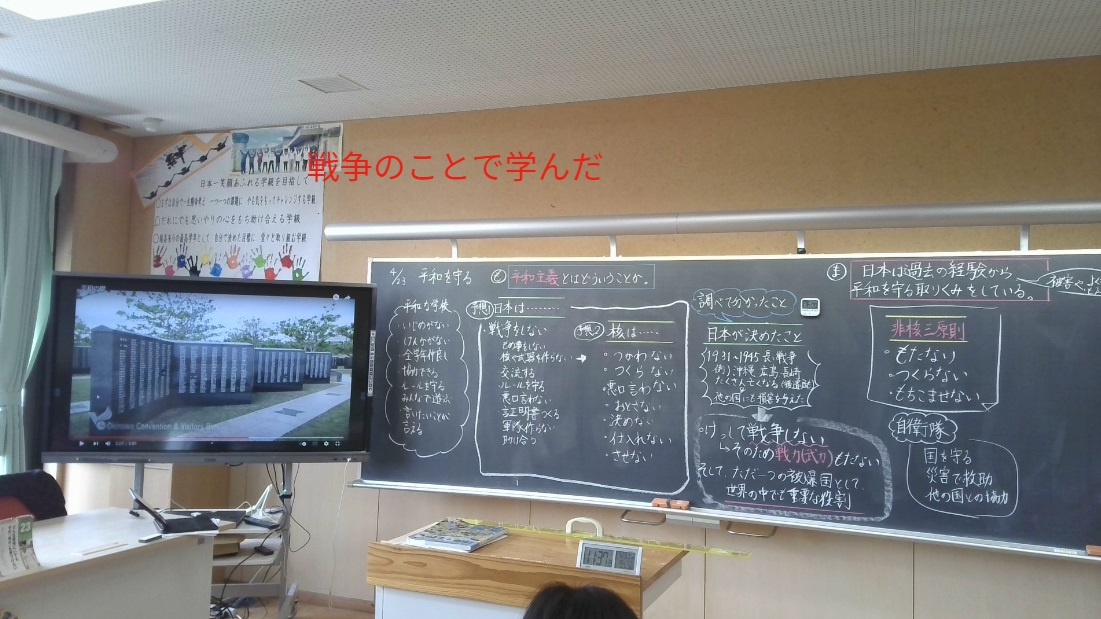 戦争のことで学んだ
日本一笑顔あふれる学級を目指して
だれにでも思いやりの心をもち助け合える学級
Okinawa Convention & Visitors
4/23 平和を守る
平和主義とはどういうことか。
平和な学校
いじめがない
けんかがない
全学年仲良し
協力できる
ルールを守る
みんなで遊ぶ
言いたいことが
言える
予想1 日本は………
・戦争をしない
核や武器を作らない
交流する
ルールを守る
悪口言わない
証明書つくる
軍隊作らない
助け合う
予想2 核は……
・つかわない
・つくらない
・悪口言わない
・おとさない
・決めない
・仕入れない
・させない
調べて分かったこと
日本が決めたこと
1931~1945 長い戦争
例)沖縄、広島、長崎
たくさん亡くなる
他の国にも損害を与えた
けっして戦争しない
そのため戦力(武力)もたない
そして、ただ一つの被爆国として、
世界の中でも重要な役割
ま 日本は過去の経験から
平和を守る取りくみをしている。
非核三原則
・もたない
・つくらない
・もちこませない
自衛隊
国を守る
災害で救助
他の国との協力
11:37
23